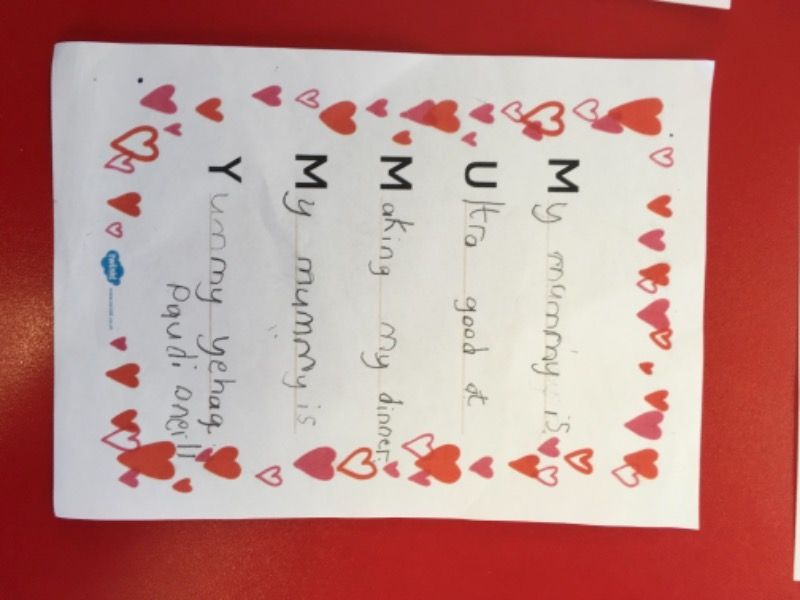 My mummy is
Ultra good at
Making my dinner.
My mummy is
Yummy yehag
Paudi oneill
twinkl